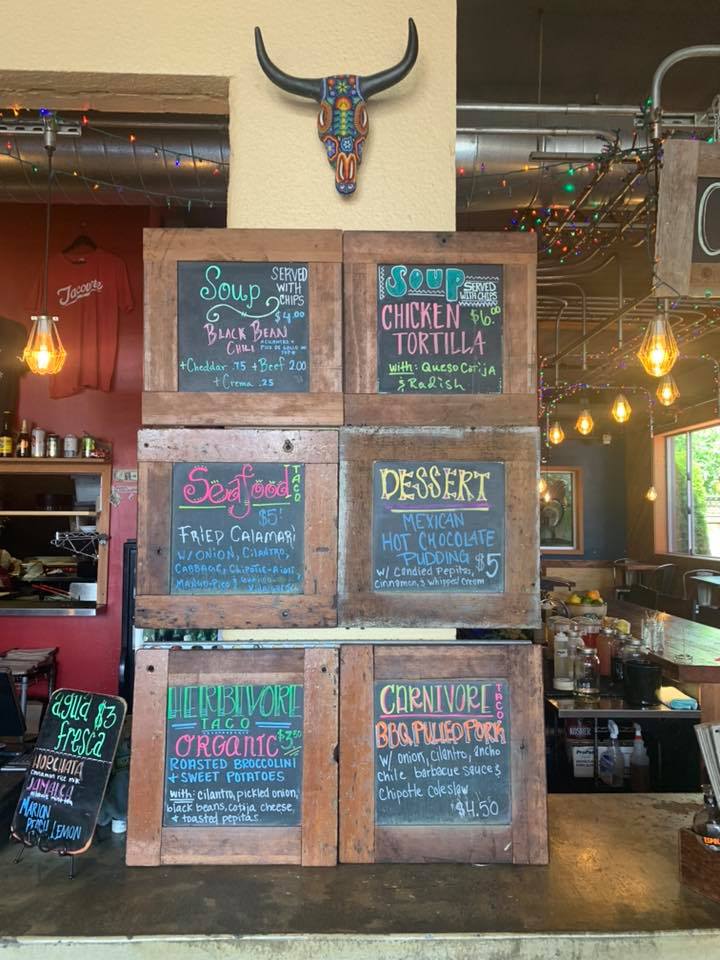 Soup
SERVED
WITH
CHIPS
$4.00
BLACK BEAN
CHILI
+Cheddar .75 +Beef 2.00
+Crema .25
SOUP
SERVED
WITH CHIPS
CHICKEN
$6.00
TORTILLA
with: Queso Cotija
& Radish
Seafood
TACO
$5!
FRIED CALAMARI
W/ ONION, CILANTRO,
CABBAGE, CHIPOTLE-AIOLI
DESSERT
MEXICAN
HOT CHOCOLATE
PUDDING $5
w/ Candied Pepitas,
cinnamon, & whipped cream
HERBIVORE
TACO
ORGANIC $3.50
ROASTED BROCCOLINI
+ SWEET POTATOES
with: cilantro, pickled onion,
black beans, cotija cheese,
& toasted pepitas.
CARNIVORE
TACO
BBQ PULLED PORK
w/ onion, cilantro, ancho
chile barbacue sauce &
chipotle coleslaw
$4.50
agua $3
fresca
HORCHATA
JAMAICA
MARION
PEACH LEMON